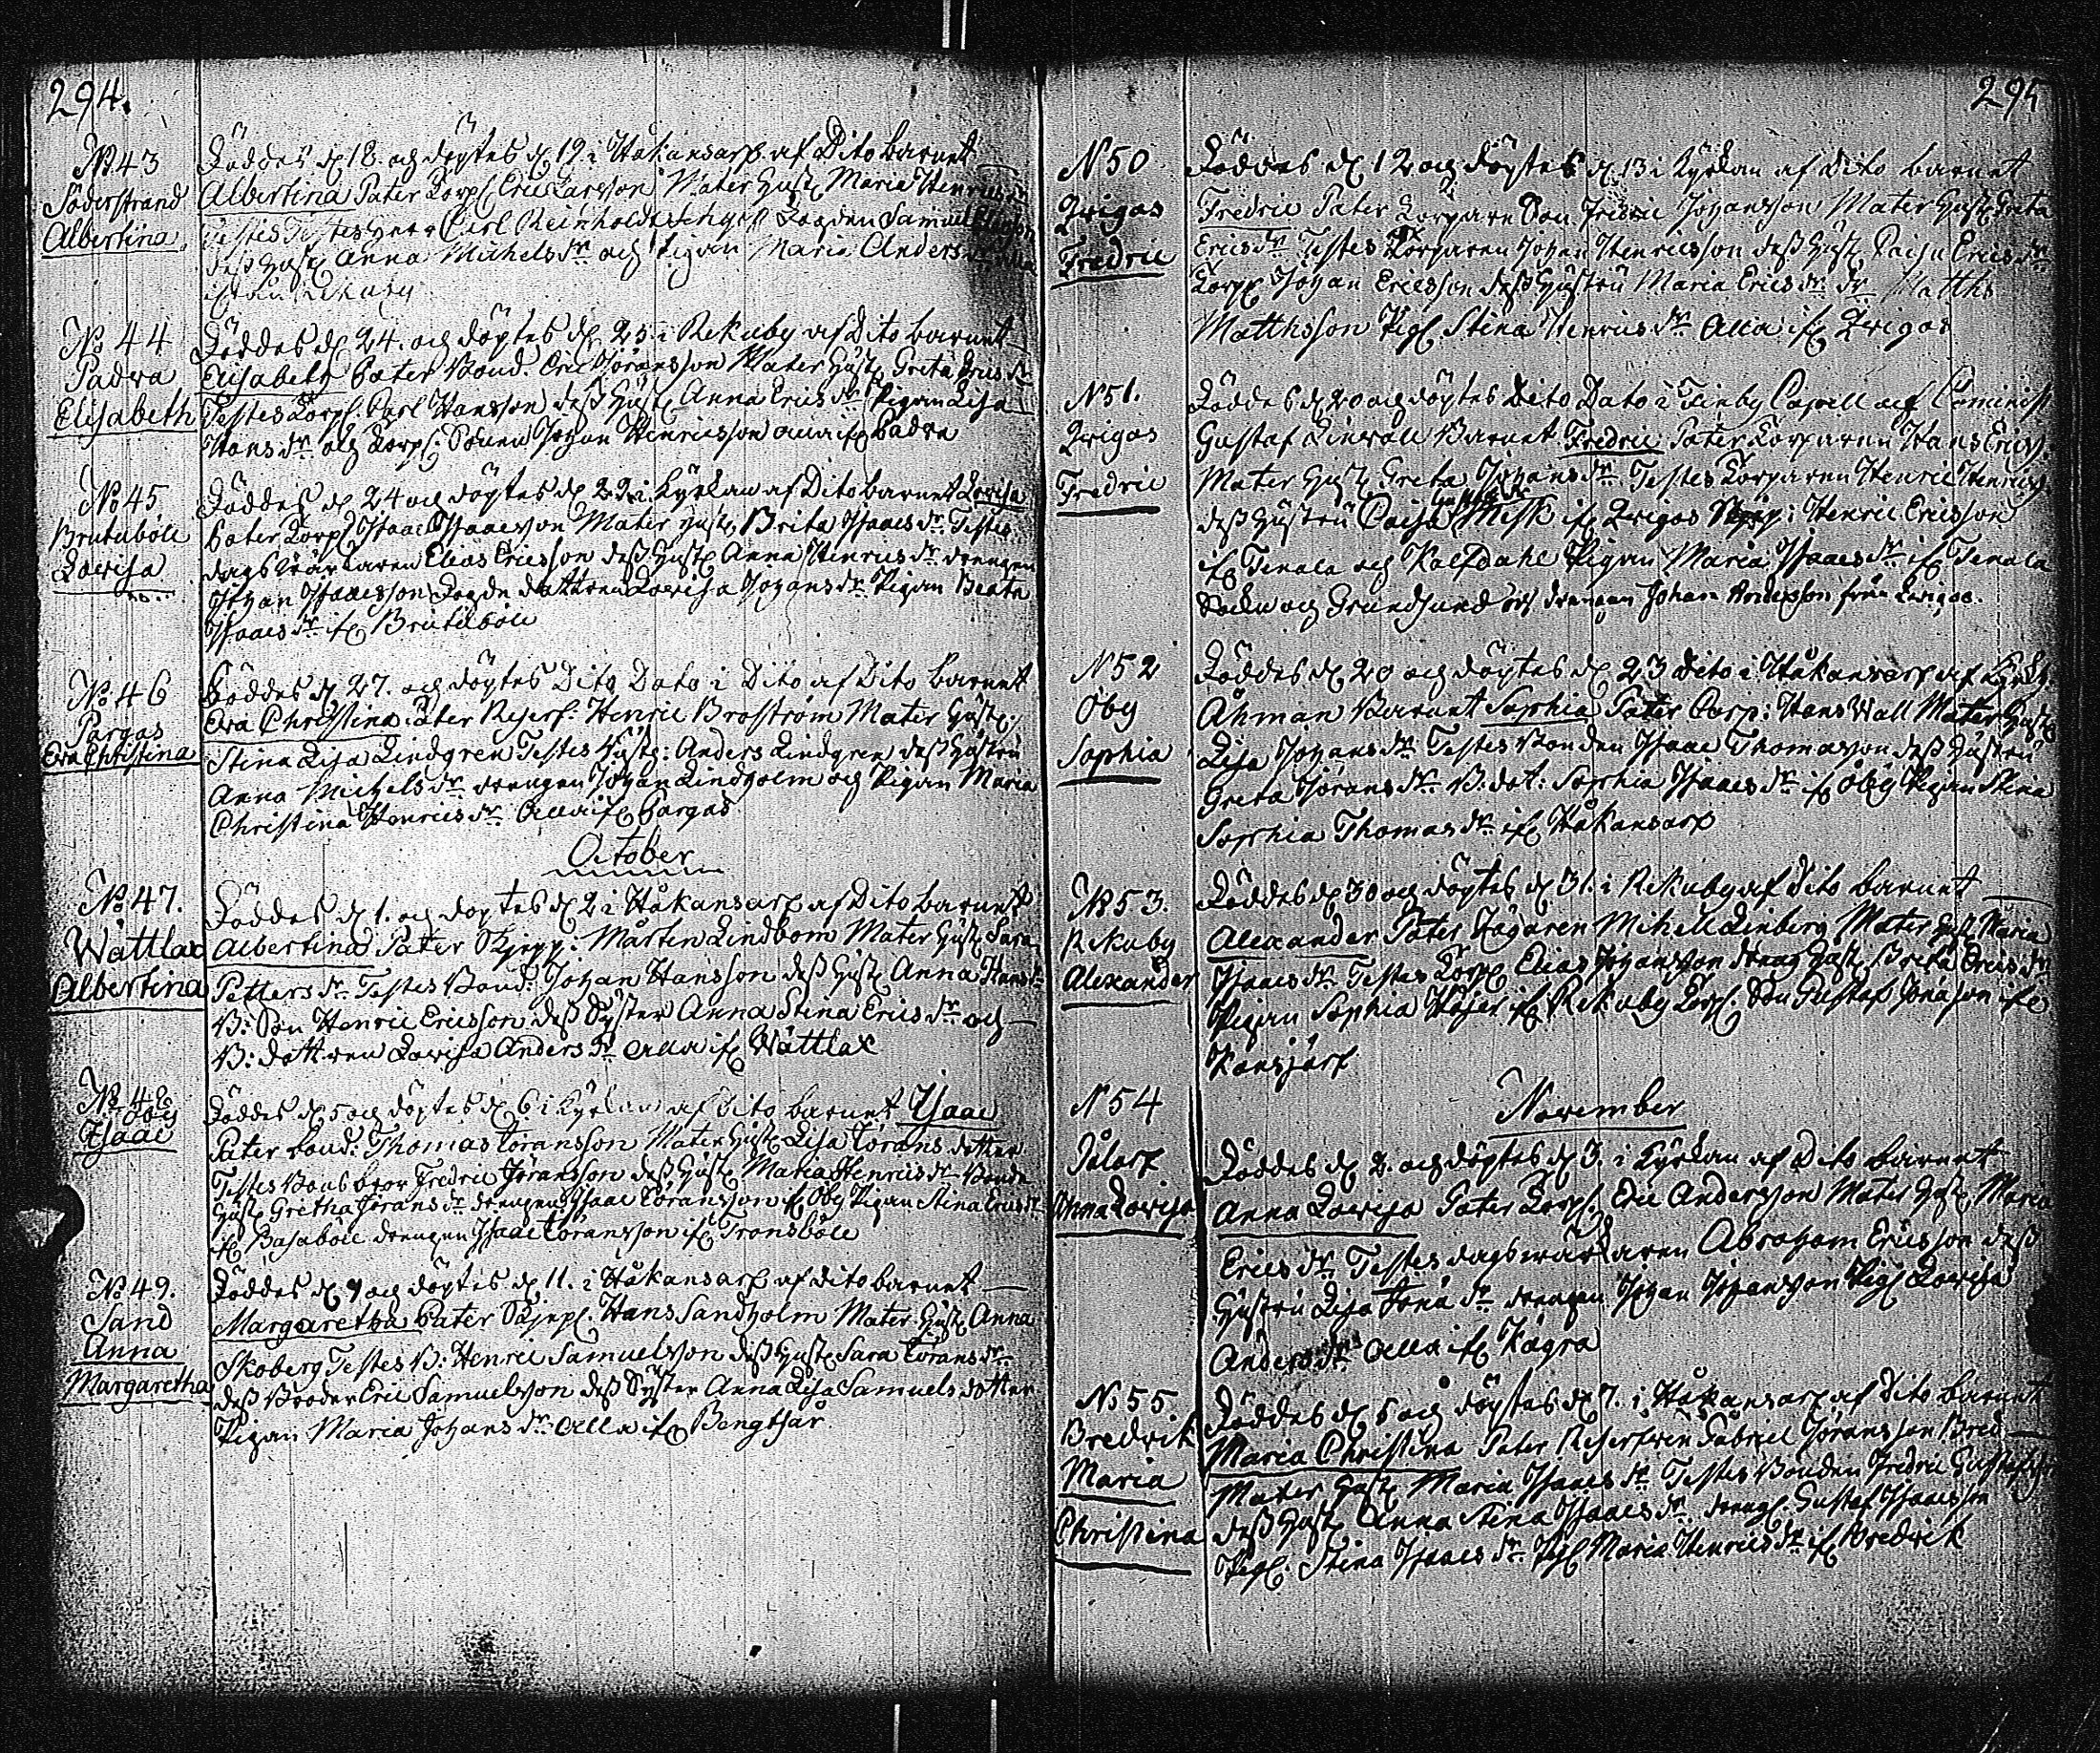 294.
No 43
Söderstrand
Albertina.
Föddes d 18. och döptes d 19. i Håkansarf af Dito barnet
Albertina Pater Torp Eric Larsson Mater Hust Maria Henricsdr
Testes Carl Reinhold Samuel
dess Hust Anna Michelsdr och Pigan Maria Andersdr
ifrån Rekuby
No 44
Padva
Elisabeth
Föddes d 24. och döptes d 25. i Rekuby af Dito barnet
Elisabeth Pater Bond. Eric Jöransson Mater Hust Greta Ericsdr
Testes Torp. Carl Hansson dess Hust Anna Ericsdr Pigan Lisa
Hansdr och Torp. Sonen Johan Henricsson alla if Padva
No 45.
Brutuböle
Lovisa
Föddes d 24 och döptes d 29 i Kyrkan af Dito barnet Lovisa
Pater Torp Isaac Isaacsson Mater Hust. Brita Isaacsdr Testes
dagsvärkaren Elias Ericsson dess Hust Anna Henricsdr drengen
Johan Isaacsson dottren Lovisa Johansdr Pigan Beata
Isaacsdr if Brutuböle
No 46
Pargas
Eva Christina
Föddes d 27. och döptes Dito Dato i Dito af Dito barnet
Eva Christina Pater Reserf. Henric Broström Mater Hust
Stina Lisa Lindgren Testes Anders Lindgren dess Hustru
Anna Michelsdr drengen Johan Lindholm och Pigan Maria
Christina Henricsdr alla if Pargas
October
No 47.
Wättlax
Albertina
Föddes d 1. och döptes d 2 i Håkansarf af Dito barnet
Albertina Pater Skepp: Mårten Lindbom Mater Hust Sara
Pettersdr Testes Bond: Johan Hansson dess Hust Anna Hansdr
B: Son Henric Ericsson dess Syster Anna Stina Ericsdr och
B: dottren Lovisa Andersdr alla if Wättlax
No 48
Öby
Isaac
Föddes d 5 och döptes d 6 i Kyrkan af Dito barnet Isaac
Pater bond: Thomas Göransson Mater Hust Lisa Görans dotter
Testes Bond bror Fredric Jöransson dess Hust Maria Henricsdr Bonde
Hust Gretha Göransdr drengen Isaac Göransson if Öby Pigan Stina Ericsdr
if Basaböle drengen Isaac Göransson if Tronsböle
No 49.
Sand
Anna
Margaretha
Föddes d 9 och döptes d 11. i Håkansarf af Dito barnet
Margaretha Pater Skepp. Hans Sandholm Mater Hust Anna
Skoberg Testes B: Henric Samuelsson dess Hust Sara Göransdr
dess Broder Eric Samuelsson dess Syster Anna Lisa Samuels dotter
Pigan Maria Johansdr alla if Bengtsår
295
N 50
Zvigos
Fredric
Föddes d 12 och döptes d 13 i Kyrkan af Dito barnet
Fredric Pater Torpare Son Fredric Johansson Mater Hust Greta
Ericsdr Testes Torparen Johan Henricsson dess Hust Caisa Ericsdr
Torp Johan Ericsson dess Hustru Maria Ericsdr dr Matths
Matthsson Pig. Stina Henricsdr alla if Zvigos
N 51.
Zvigos
Fredric
Föddes d 20 och döptes Dito Dato i Finby Capell af Cominist
Gustaf Barnet Fredric Pater Torparen Hans Erics.
Mater Hust Greta Johansdr Testes Torparen Henric Henrics.
dess Hustru Caisa if Zvigos Henric Ericsson
if Tenala och Kalfdahl Pigan Maria Isaacsdr if Tenala
Socken och Grundsund och drengen Johan Anderson från Zvigos.
N 52
Öby
Sophia
Föddes d 20 och döptes d 23 Dito i Håkansarf af Kyrkh.
Åhman Barnet Sophia Pater Corp: Hans Wall Mater Hust
Lisa Johansdr Testes Bonden Isaac Thomasson dess Hustru
Greta Jöransdr B: dot: Sophia Isaacsdr if Öby Pigan Stina
Sophia Thomasdr if Håkansarf
No 53.
Rekuby
Alexander
Föddes d 30 och döptes d 31. i Rekuby af Dito barnet
Alexander Pater Michel Linberg Mater Hust Maria
Isaacsdr Testes Torp Elias Johansson Hust Brita Ericsdr
Pigan Sophia if Rekuby Torp. Son Gustaf Jonasson if
Kansjärf
November
N 54
Pålarf
Anna Lovisa
Föddes d 2. och döptes d 3. i Kyrkan af Dito barnet
Anna Lovisa Pater Torp. Eric Andersson Mater Hust Maria
Ericsdr Testes dagsvärkaren Abraham Ericsson dess
Hustru Lisa dr drengen Johan Johansson Pig Lovisa
Andersdr alla if Kågra
No 55
Bredvik
Maria
Christina
Föddes d 5 och döptes d 7. i Håkansarf af Dito barnet
Maria Christina Pater Gabriel Jöransson Bred
Mater Hust Maria Isaacsdr Testes Bonden Fredric
dess Hust Anna Stina Isaacsdr dreng. Gustaf Isaacsson
Pig. Stina Isaacsdr Pig Maria Henricsdr if Bredvik